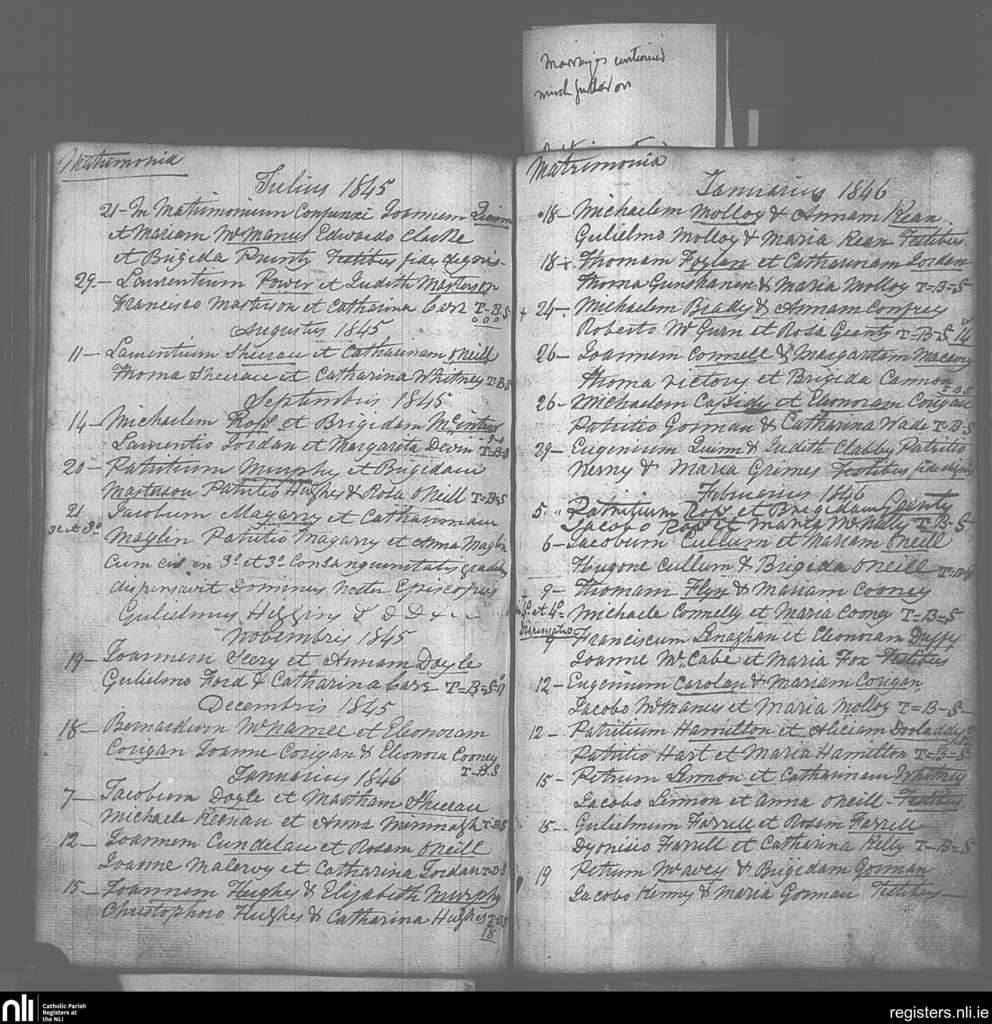 Marriages continued
much further on
Matrimonia
Julius 1845
21- In Matrimonium Conjunxi Joannem Quinn
et Mariam McManus Edwardo Clarke
et Brigida Testibus fide dignis-
29- Laurentium Power et Judith Masterson
Francisco Masterson et Catharina Carr T-B-S
Augustus 1845
11- Laurentium Sheeran et Catharinam ONeill
Thoma Sheeran et Catharina Whitney T-B-S
Septembris 1845
14- Michaelem Ross et Brigidam McEntire
Laurentio Jordan et Margarita Devin T=B=S
20- Patritium Murphy et Brigidam
Masterson Patritio Hughes & Rosa ONeill T=B=S
21 Jacobum Magarry et Catharinam
Maglin Patritio Magarry et Anna Maglin
cum eis in 3o et 3o Consanguinitatis gradibus
dispensavit Dominus Noster Episcopus
Gulielmus Higgins
Novembris 1845
19- Joannem et Annam Doyle
Gulielmo Ford & Catharina Carr T=B=S
Decembris 1845
18- Bernardum McNamee et Eleonoram
Corigan Joanne Corigan & Elenora Cooney
T-B.S
Januarius 1846
7- Jacobum Doyle et Martham Sheeran
Michaele Keenan et Anna Mimnagh T-B-S
12- Joannem Cundelan et Rosam ONeill
Joanne Malervy et Catharina Jordan T-B-S
15- Joannem Hughes & Elizabeth Murphy
Christophoro Hughes & Catharina Hughes T-B-S
18
Matrimonia
Januarius 1846
18- Michaelem Molloy & Annam Kean
Gulielmo Molloy & Maria Kean Testibus
18- Thomam Foylan et Catharinam Jordan
Thoma Gunshanen & Maria Molloy T=B=S
+ 24- Michaelem Brady & Annam Confrey
Roberto McGurn et Rosa Geanty T-B-S
26- Joannem Connell & Margaritam Macavoy
Thoma Victory et Brigida Cannon
26- Michaelem Cassidy et Eleonoram Corigan
Patritio Gorman & Catharina Wade T-B-S
29- Eugenium Quinn & Judith Clabby Patritio
Nerny & Maria Grimes Testibus fide dignis
Februarius 1846
5. Patritium Ross et Brigidam Geanty
Jacobo Ross et Maria McNally T-B-S
6- Jacobum Cullum et Mariam ONeill
Hugone Cullum & Brigida ONeill T-B-S
+ 9- Thomam Flyn & Mariam Cooney
4o et 4o Michaele Connelly et Maria Cooney T=B=S
Dispensatio
9 Franciscum Lenaghan et Eleonoram Duffy
Joanne McCabe et Maria Fox Testibus
12- Eugenium Carolan & Mariam Corigan
Jacobo McManus et Maria Molloy T=B-S-
12- Patritium Hamilton et Aliciam
Patritio Hart et Maria Hamilton T=B-S
15- Petrum Lennon et Catharinam Whitney
Jacobo Lennon et Anna ONeill- Testibus
15- Gulielmum Farrell et Rosam Farrell
Dyonisio Farrell et Catharina Kelly T-B=S
19 Petrum McAvey & Brigidam Gorman
Jacobo Kenny & Maria Gorman Testibus
nli
Catholic Parish
Registers at
the NLI
registers.nli.ie